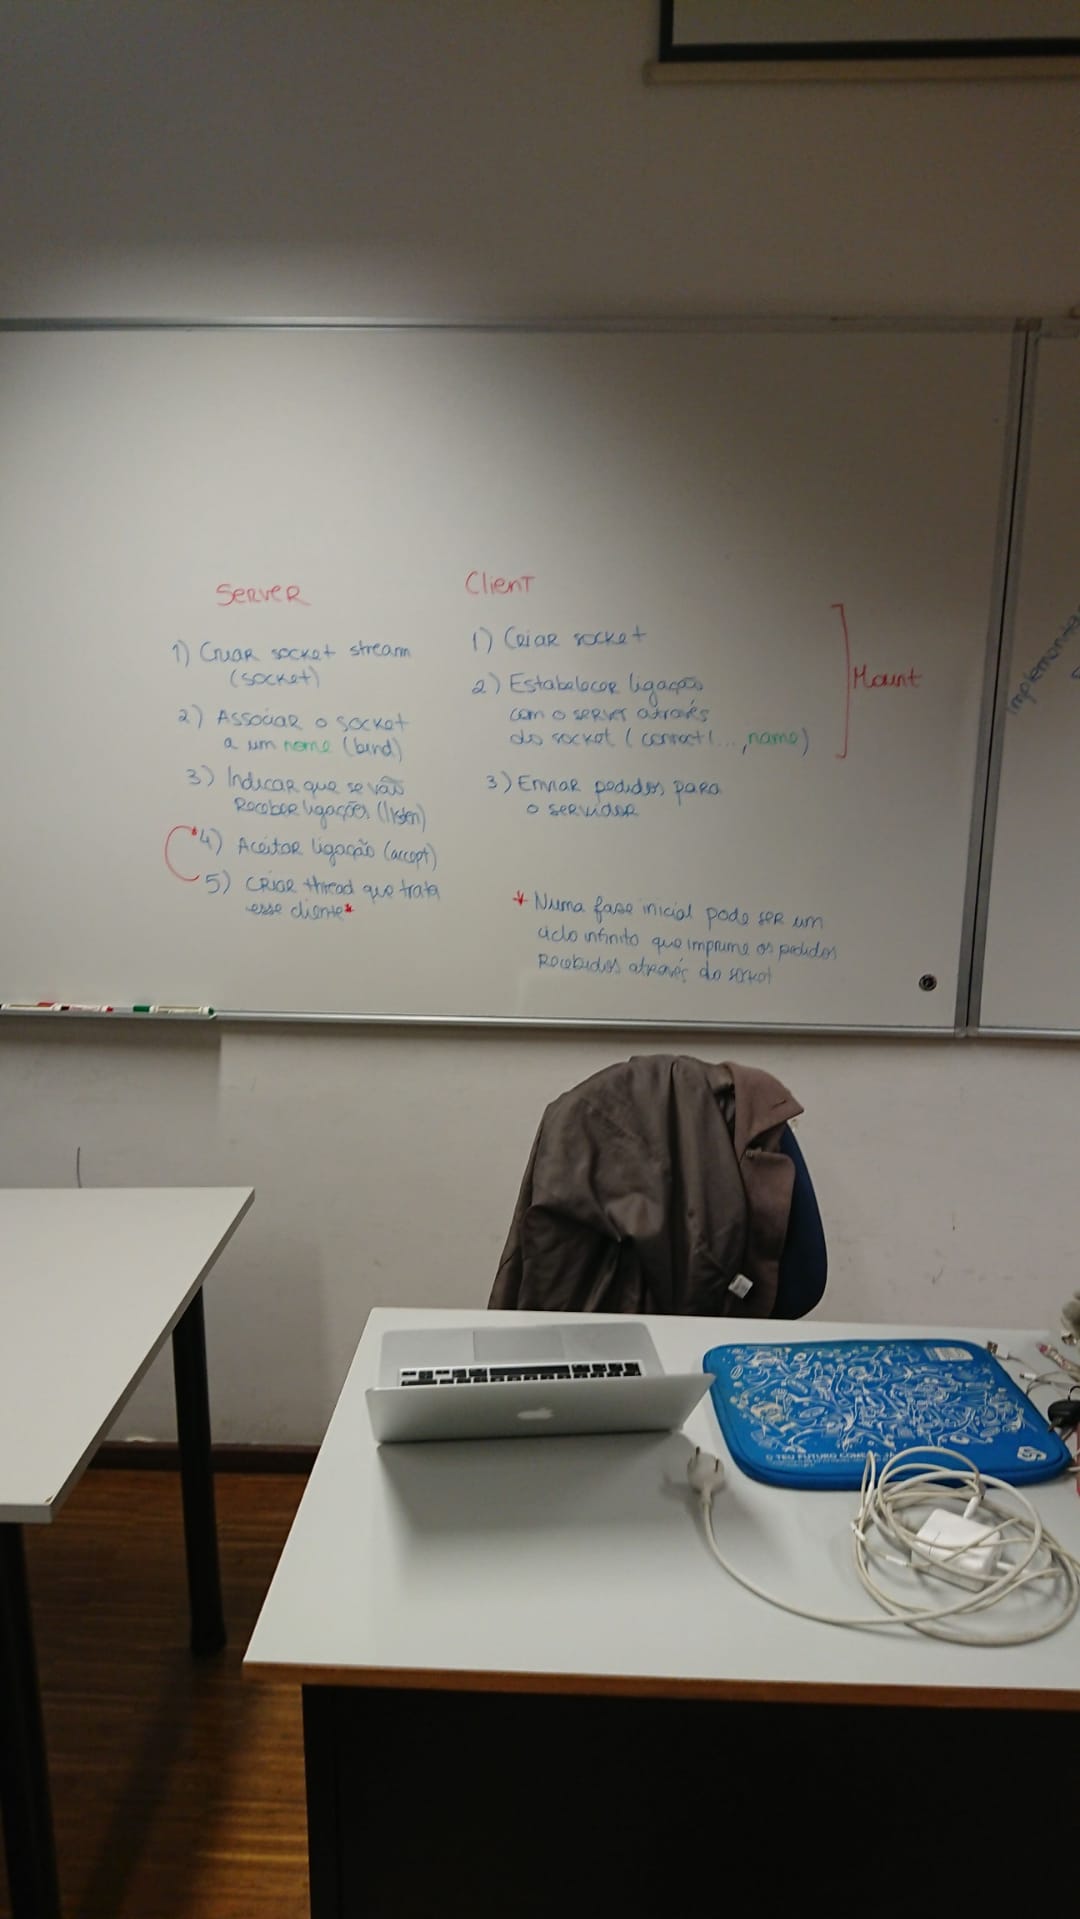 Server
1) Criar socket stream
(socket)
2) Associar o socket
a um nome (bind)
3) Indicar que se vão
Receber ligações (listen)
4) Aceitar ligação (accept)
5) Criar thread que trata
esse cliente*
Client
1) Criar socket
2) Estabelecer ligação
com o server através
do socket (connect(..., name)
3) Enviar pedidos para
o servidor
Mount
* Numa fase inicial pode ser um
ciclo infinito que imprime os pedidos
Recebidos através do socket
O TEU FUTURO COMEÇA